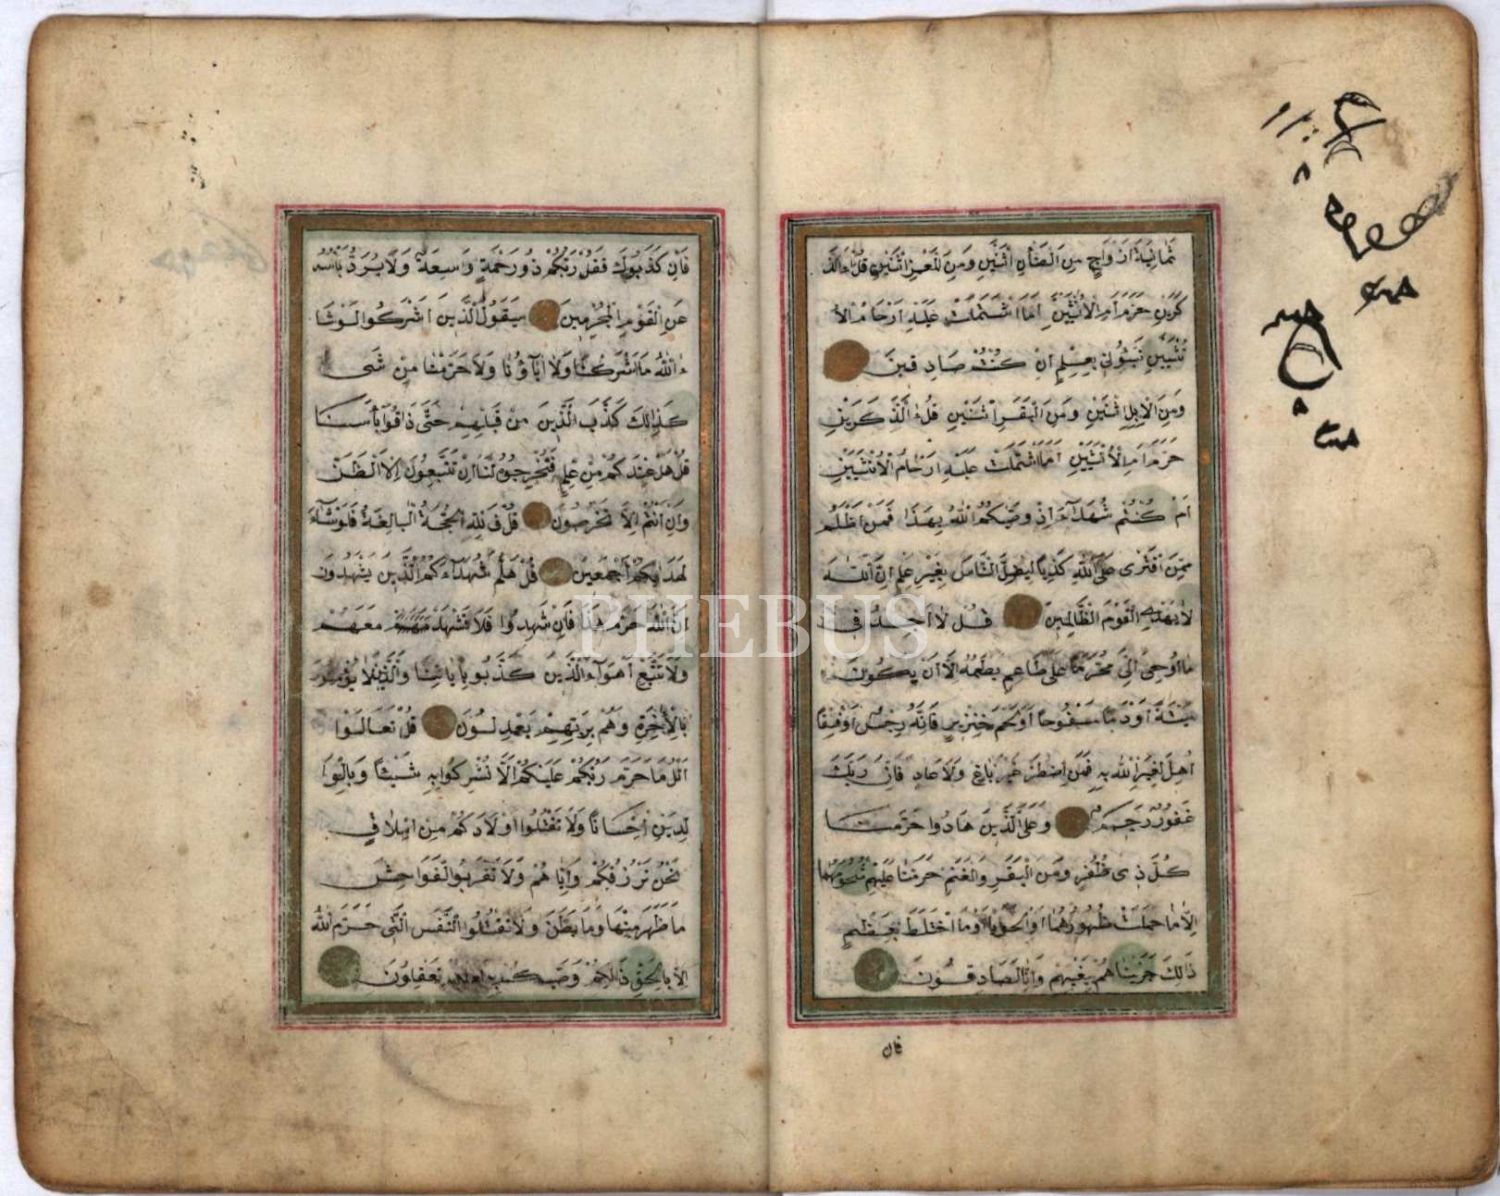 ثَمَانِيَةَ اَزْوَاجٍ مِنَ الضَّأْنِ اثْنَيْنِ وَمِنَ الْمَعْزِ اثْنَيْنِ قُلْ ءَالذَّ
كَرَيْنِ حَرَّمَ اَمِ الْاُنْثَيَيْنِ اَمَّا اشْتَمَلَتْ عَلَيْهِ اَرْحَامُ الْاُ
نْثَيَيْنِ نَبِّؤُنِي بِعِلْمٍ اِنْ كُنْتُمْ صَادِقِينَ
وَمِنَ الْاِبِلِ اثْنَيْنِ وَمِنَ الْبَقَرِ اثْنَيْنِ قُلْ ءَالذَّكَرَيْنِ
حَرَّمَ اَمِ الْاُنْثَيَيْنِ اَمَّا اشْتَمَلَتْ عَلَيْهِ اَرْحَامُ الْاُنْثَيَيْنِ
اَمْ كُنْتُمْ شُهَدَآءَ اِذْ وَصّٰيكُمُ اللّٰهُ بِهٰذَا فَمَنْ اَظْلَمُ
مِمَّنِ افْتَرٰى عَلَى اللّٰهِ كَذِبًا لِيُضِلَّ النَّاسَ بِغَيْرِ عِلْمٍ اِنَّ اللّٰهَ
لَا يَهْدِي الْقَوْمَ الظَّالِمِينَ قُلْ لَا اَجِدُ فِي
مَا اُوحِيَ اِلَيَّ مُحَرَّمًا عَلٰى طَاعِمٍ يَطْعَمُهُ اِلَّا اَنْ يَكُونَ
مَيْتَةً اَوْ دَمًا مَسْفُوحًا اَوْ لَحْمَ خِنْزِيرٍ فَاِنَّهُ رِجْسٌ اَوْ فِسْقًا
اُهِلَّ لِغَيْرِ اللّٰهِ بِهِ فَمَنِ اضْطُرَّ غَيْرَ بَاغٍ وَلَا عَادٍ فَاِنَّ رَبَّكَ
غَفُورٌ رَحِيمٌ وَعَلَى الَّذِينَ هَادُوا حَرَّمْنَا
كُلَّ ذِي ظُفُرٍ وَمِنَ الْبَقَرِ وَالْغَنَمِ حَرَّمْنَا عَلَيْهِمْ شُحُومَهُمَا
اِلَّا مَا حَمَلَتْ ظُهُورُهُمَا اَوِ الْحَوَايَا اَوْ مَا اخْتَلَطَ بِعَظْمٍ
ذٰلِكَ جَزَيْنَاهُمْ بِبَغْيِهِمْ وَاِنَّا لَصَادِقُونَ
فان
فَاِنْ كَذَّبُوكَ فَقُلْ رَبُّكُمْ ذُو رَحْمَةٍ وَاسِعَةٍ وَلَا يُرَدُّ بَأْسُهُ
عَنِ الْقَوْمِ الْمُجْرِمِينَ سَيَقُولُ الَّذِينَ اَشْرَكُوا لَوْ شَا
ءَ اللّٰهُ مَا اَشْرَكْنَا وَلَا اٰبَآؤُنَا وَلَا حَرَّمْنَا مِنْ شَيْ
كَذٰلِكَ كَذَّبَ الَّذِينَ مِنْ قَبْلِهِمْ حَتّٰى ذَاقُوا بَأْسَنَا
قُلْ هَلْ عِنْدَكُمْ مِنْ عِلْمٍ فَتُخْرِجُوهُ لَنَا اِنْ تَتَّبِعُونَ اِلَّا الظَّنَّ
وَاِنْ اَنْتُمْ اِلَّا تَخْرُصُونَ قُلْ فَلِلّٰهِ الْحُجَّةُ الْبَالِغَةُ فَلَوْ شَآءَ
لَهَدٰيكُمْ اَجْمَعِينَ قُلْ هَلُمَّ شُهَدَآءَكُمُ الَّذِينَ يَشْهَدُونَ
اَنَّ اللّٰهَ حَرَّمَ هٰذَا فَاِنْ شَهِدُوا فَلَا تَشْهَدْ مَعَهُمْ
وَلَا تَتَّبِعْ اَهْوَآءَ الَّذِينَ كَذَّبُوا بِاٰيَاتِنَا وَالَّذِينَ لَا يُؤْمِنُونَ
بِالْاٰخِرَةِ وَهُمْ بِرَبِّهِمْ يَعْدِلُونَ قُلْ تَعَالَوْا
اَتْلُ مَا حَرَّمَ رَبُّكُمْ عَلَيْكُمْ اَلَّا تُشْرِكُوا بِهِ شَيْئًا وَبِالْوَا
لِدَيْنِ اِحْسَانًا وَلَا تَقْتُلُوا اَوْلَادَكُمْ مِنْ اِمْلَاقٍ
نَحْنُ نَرْزُقُكُمْ وَاِيَّاهُمْ وَلَا تَقْرَبُوا الْفَوَاحِشَ
مَا ظَهَرَ مِنْهَا وَمَا بَطَنَ وَلَا تَقْتُلُوا النَّفْسَ الَّتِي حَرَّمَ اللّٰهُ
اِلَّا بِالْحَقِّ ذٰلِكُمْ وَصّٰيكُمْ بِهِ لَعَلَّكُمْ تَعْقِلُونَ
PHEBUS